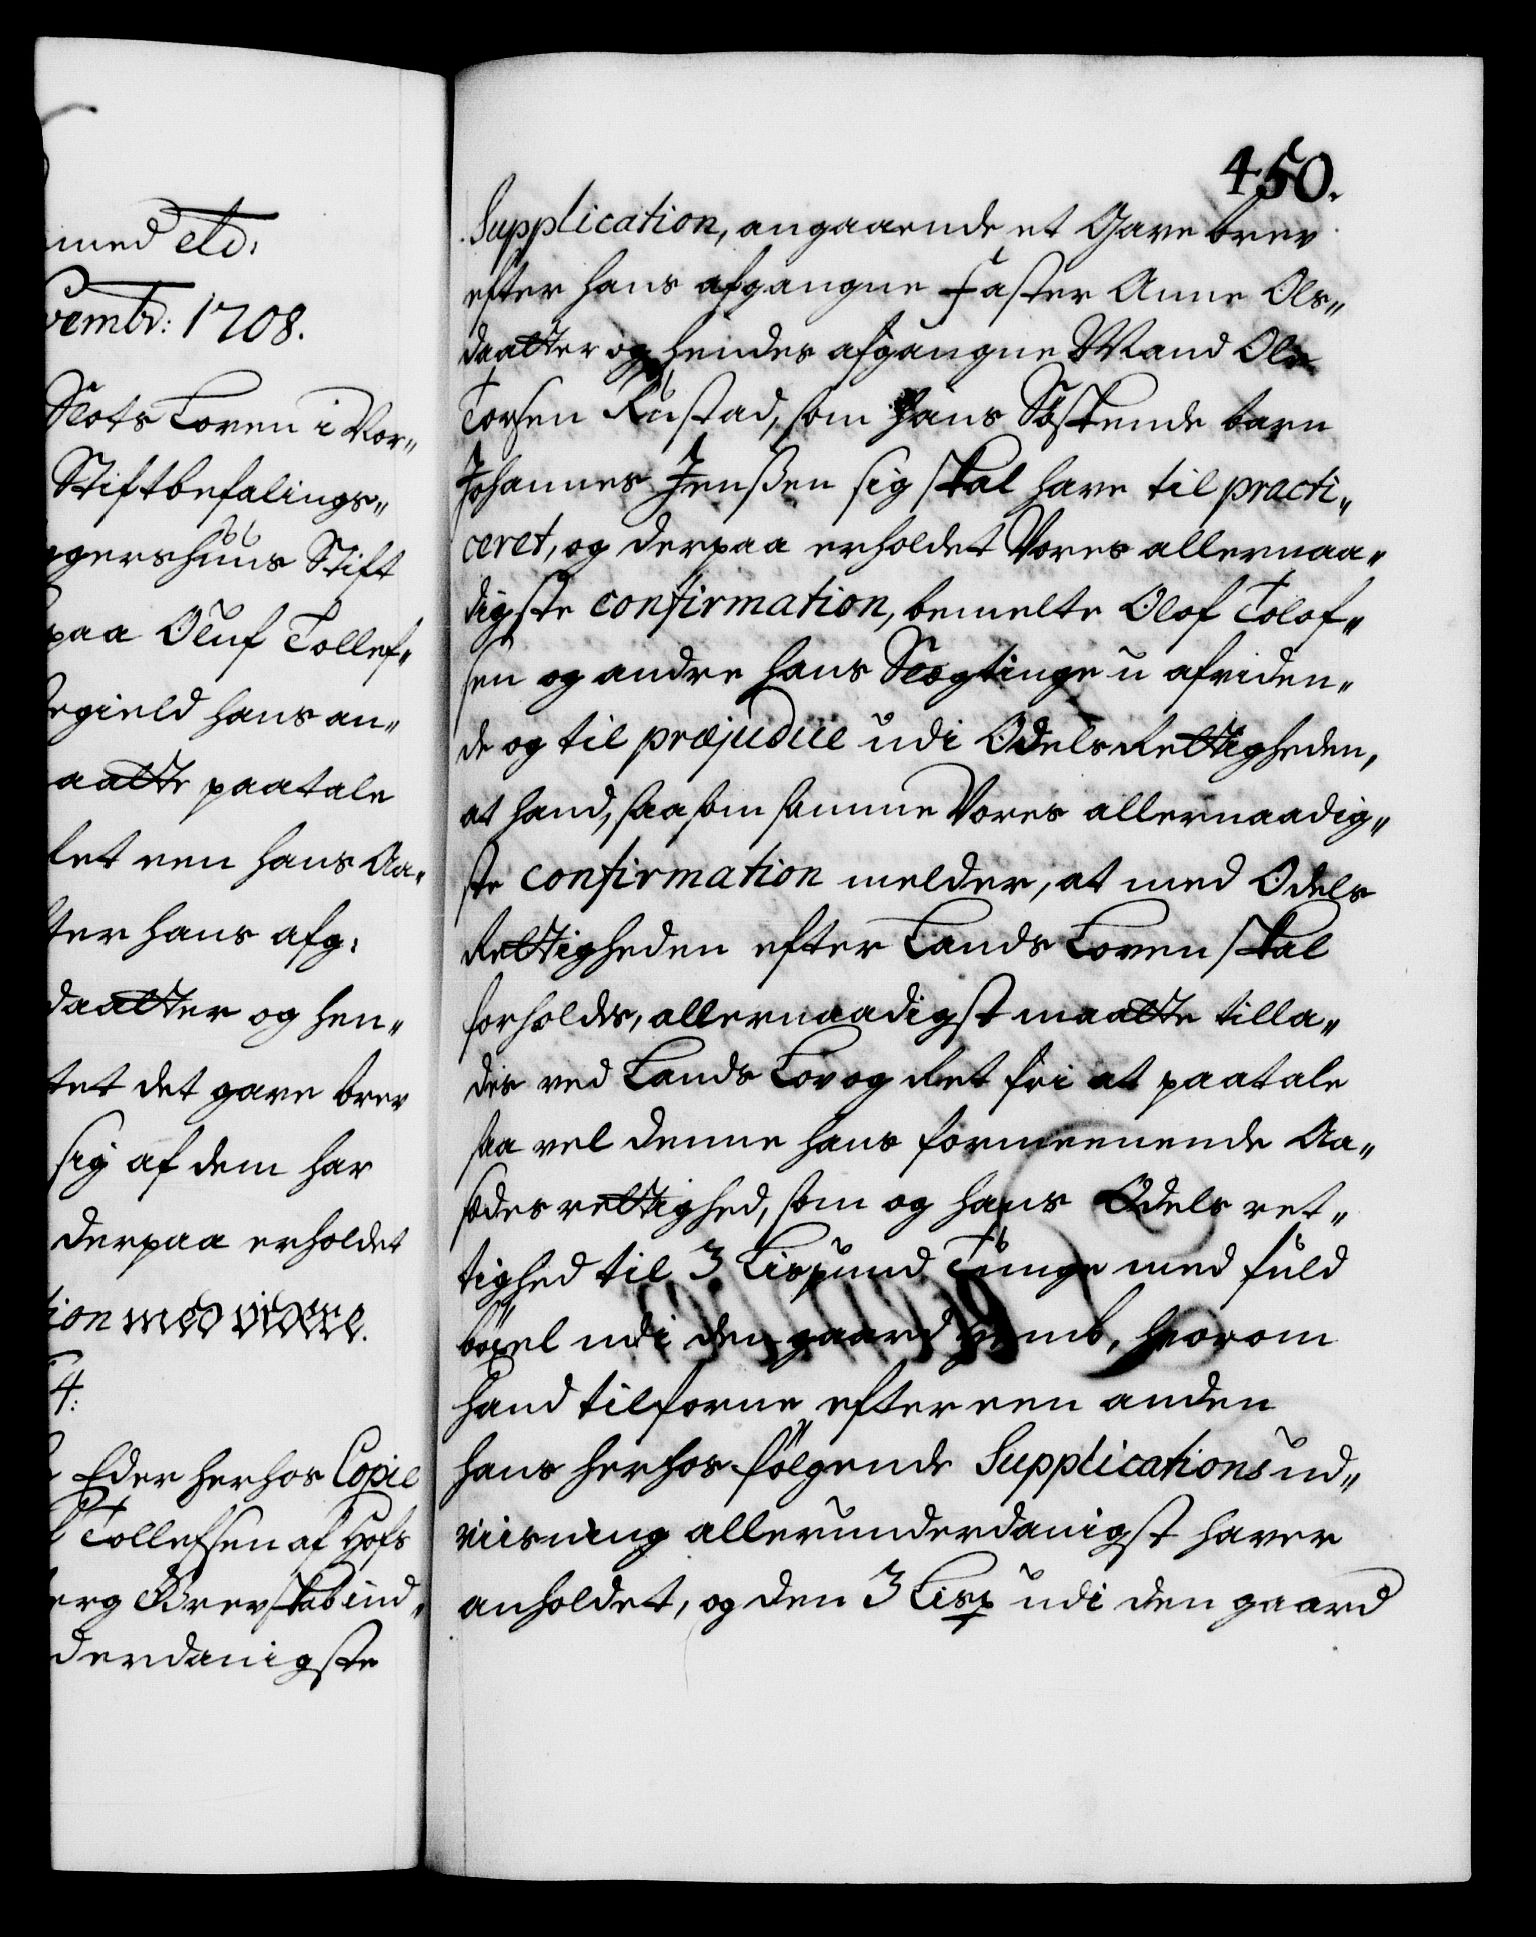 med etc:
vembr: 1708.
Slots Loven i Nor„
Stiftbefalings„
gershuus Stift
paa Oluf Tollef„
egield hans an„
aatte paatale
let een hans Aa„
ter hans afg:
daatter og hen„
tet det gave brev
sig af dem har
derpaa erholdet
ion med videre.
4:
Eder herhos Copie
Tollefsen af Hofs
erg Grevskab ind„
derdanigste
450.
Supplication, angaaende et Gave brev
efter hans afgangne Faster Anne Ols„
daatter og hendes afgangne Mand Ole
Torsen Rustad, som hans Söskende barn
Johannes Jenssen sig skal have til practi„
ceret, og derpaa erholdet Vores allernaa„
digste confirmation, bemelte Olof Tolof„
sen og andre hans Slægtinge u afviden„
de og til præjudice udi Odels Rettigheden,
at hand, saasom samme Vores allernaadig„
ste confirmation melder, at med Odels
Rettigheden efter Lands Loven skal
forholdes, allernaadigst maatte tilla„
des ved Lands Lov og Ret fri at paatale
saa vel denne hans formeenende Aa„
sædes rettighed, som og hans Odels ret„
tighed til 3 Lispund Tunge med fuld
böxel udi den gaard, hvorom
hand tilforne efter een anden
hans herhos fölgende Supplications ud„
viisning allerunderdanigst haver
anholdet, og den 3 Lisp udi den gaard